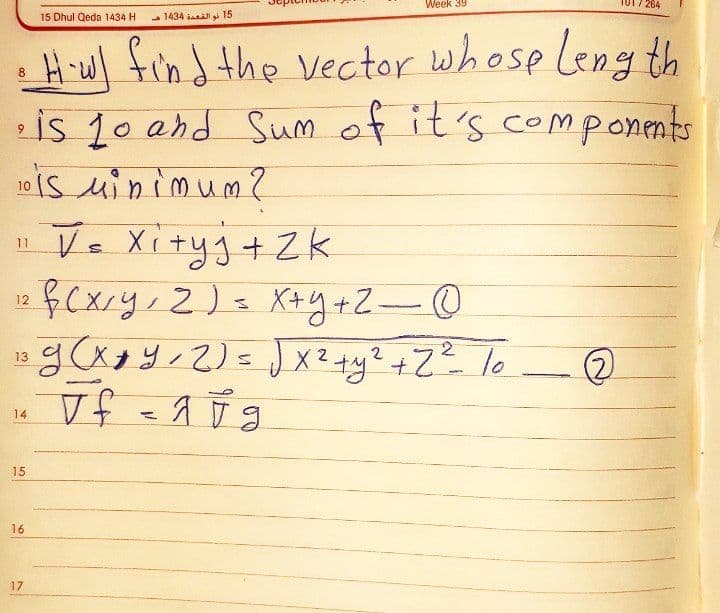 Week 39
15 Dhul Qeda 1434 H 15 ذو القعدة 1434 هـ
8 H.w] find the vector whose length
9 is 10 and Sum of it's components
10 is minimum?
11 V = xi+yj+Zk
12 f(x,y,z) = x+y+z — ①
13 g(x,y,z) = √x²+y²+z² - 10 — ②
14 ∇f = λ ∇g
15
16
17